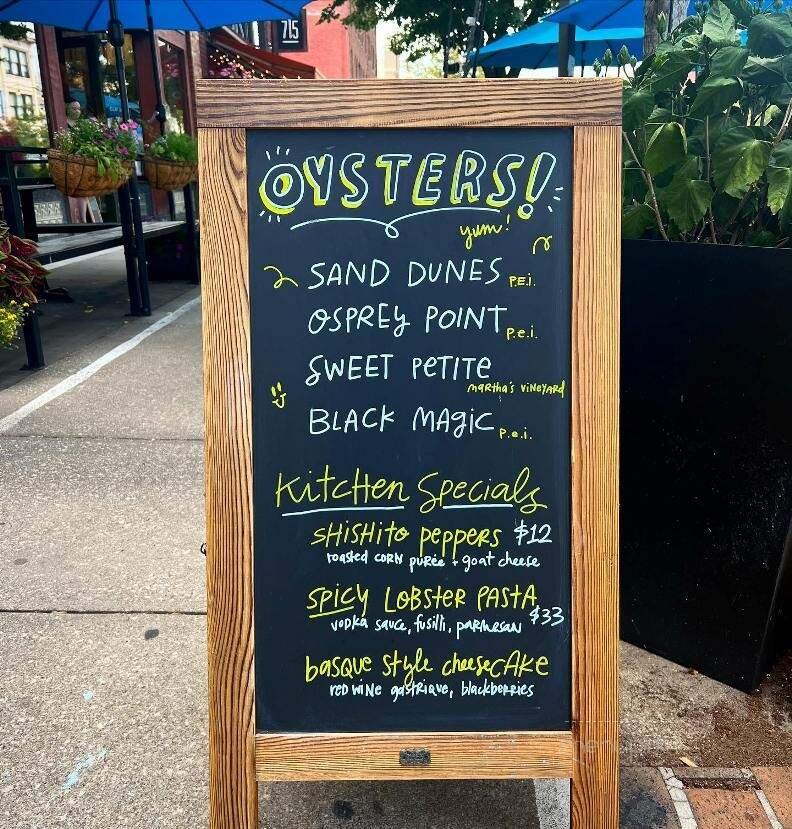 715
OYSTERS!
yum!
SAND DUNES P.E.i.
OSPREY POINT P.e.i.
SWEET PETITE
MARTHA'S VINEYARD
BLACK MAGIC P.e.i.
KitcHen Specials
SHISHITO peppers $12
roasted CORN purée + goat cheese
SPICY LOBSTER PASTA $33
VODKA SAUCE, fusilli, PARMESAN
basque style cheeseCAKE
RED WINE gastrique, blackberries